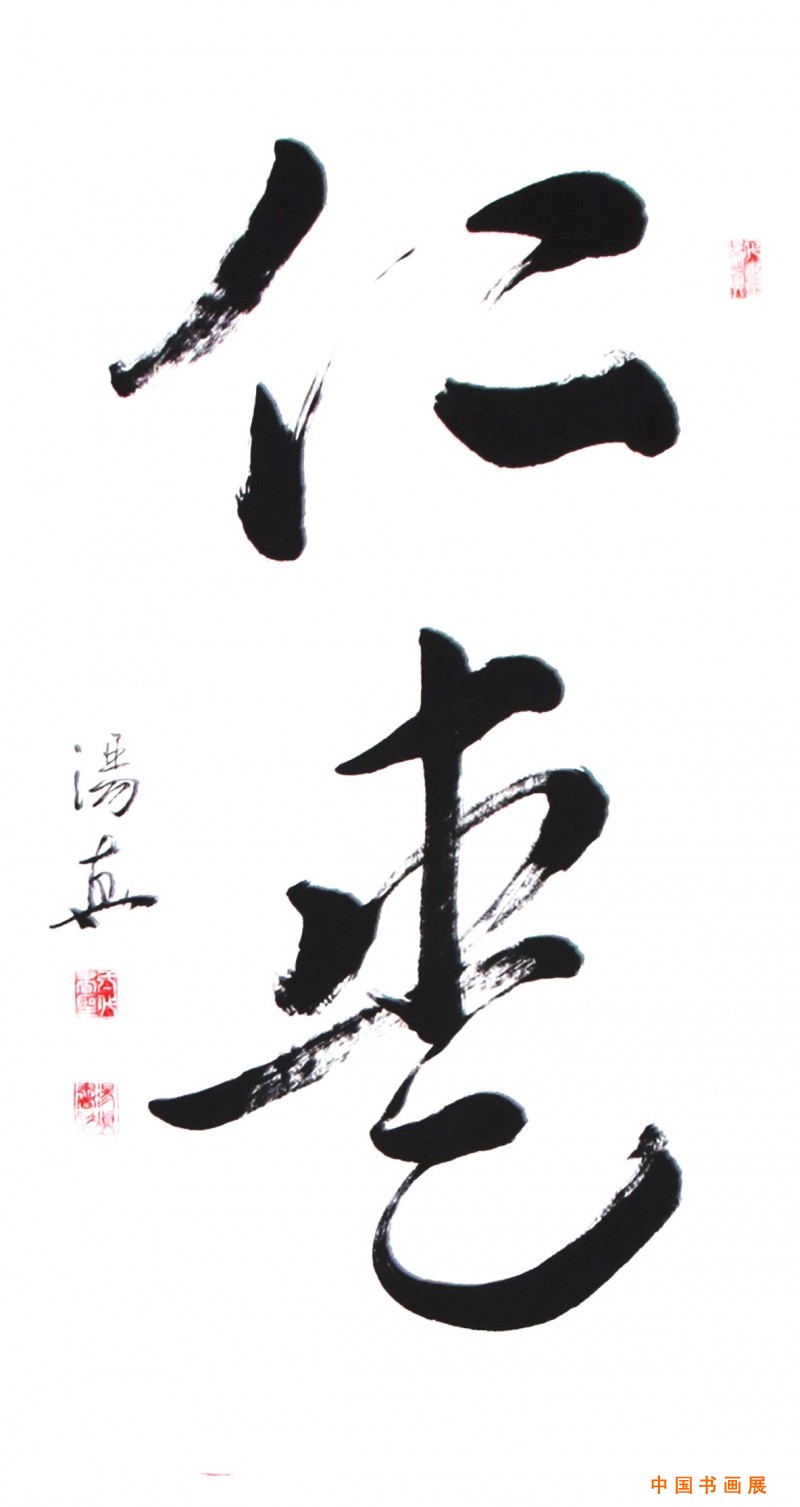 仁
惠
湯真
中国书画展